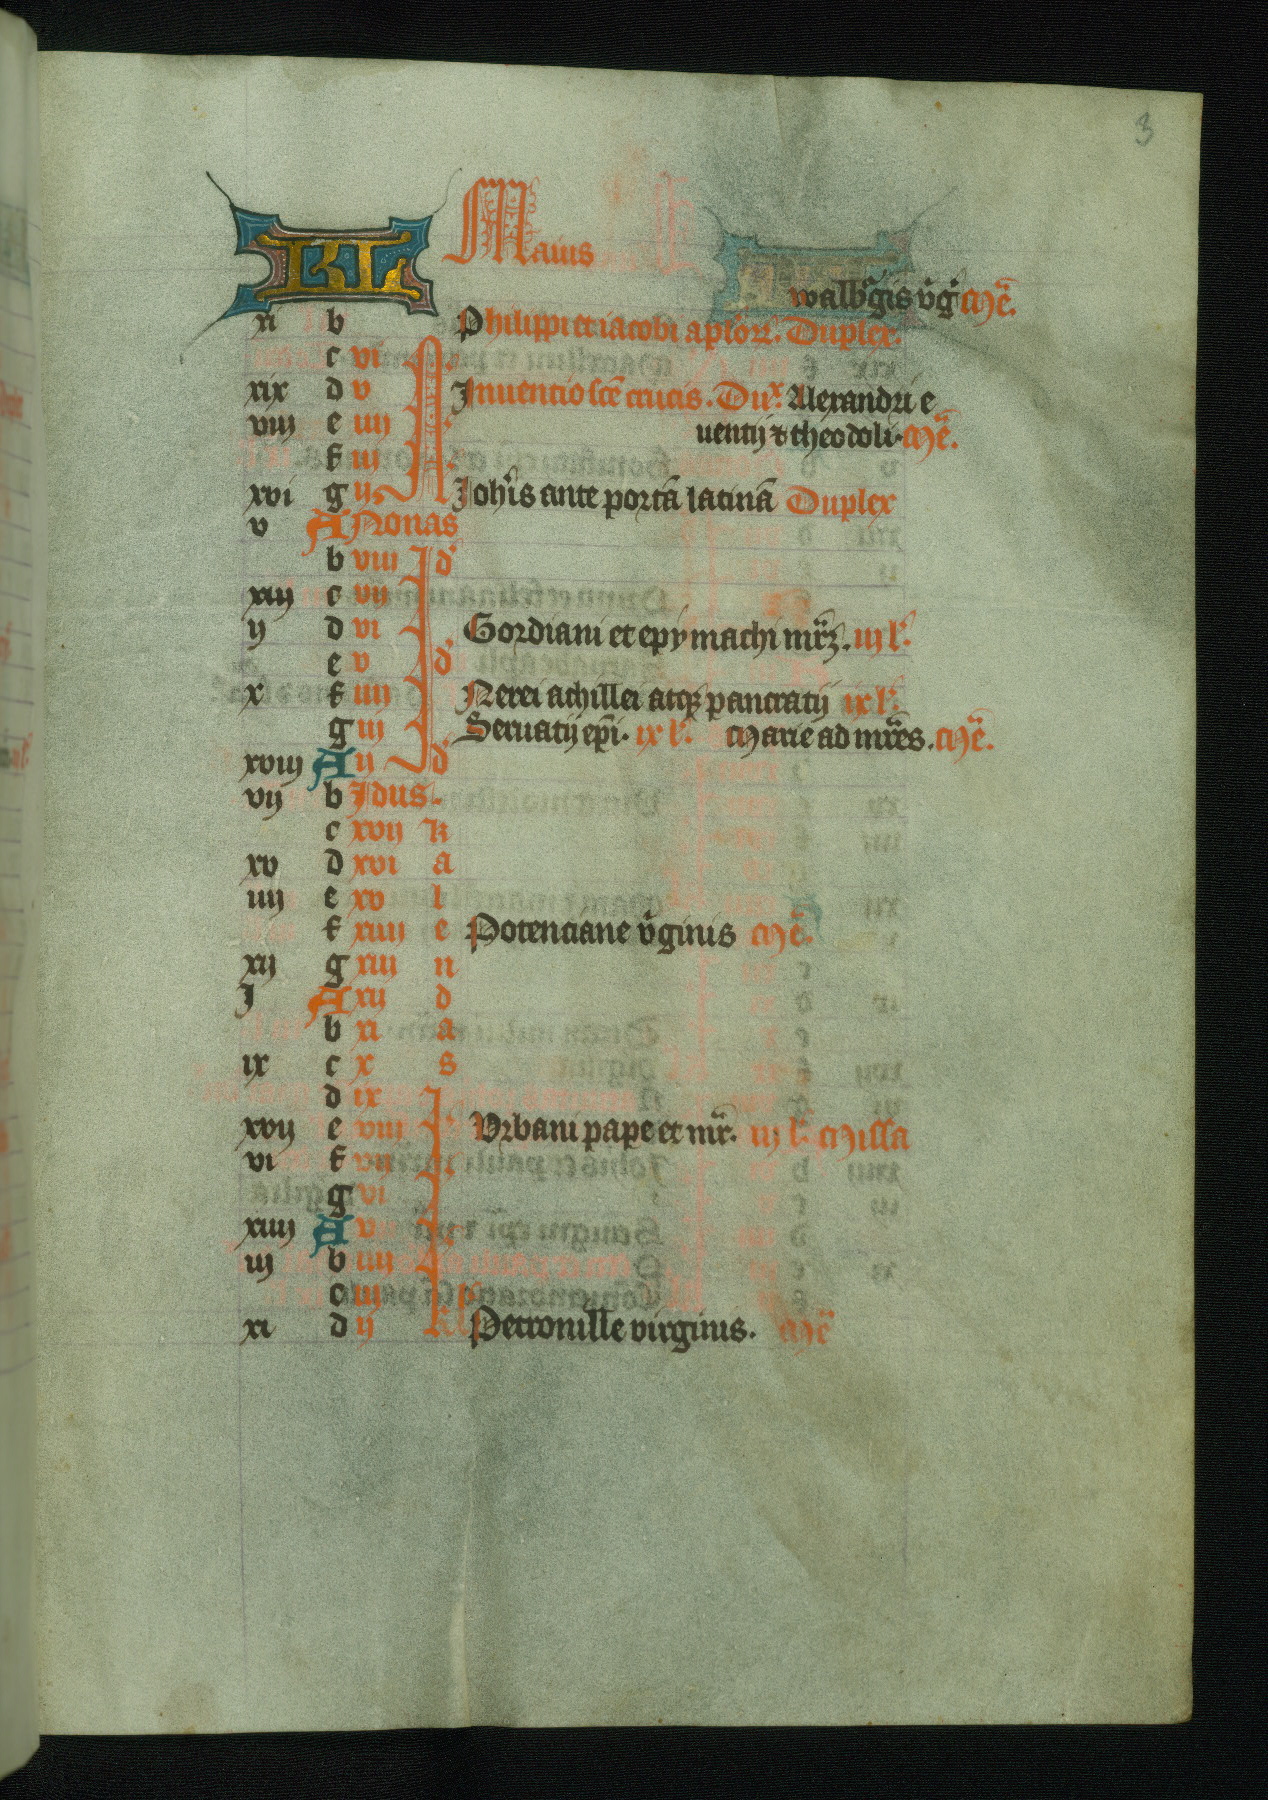 3
KL Maius
walbgis vg mē.
xi b Philippi et iacobi aplorꝝ. Duplex.
c vi N.
xix d v Inuentio scē crucis. Dux. Alexandri e
viij e iiij uentij ⁊ theodoli. mē.
f iij
xvi g ij Johis ante portā latinā Duplex
v A Nonas
b viii Id
xiij c vij
ij d vi Gordiani et epymachi mrꝫ. iij l.
e v Id
x f iiij Nerei achillei atqꝫ pancratij ix l.
g iij Seruatij epi. ix l. Marie ad mrēs. mē.
xviij A ij d
vij b Idus.
c xvij k
xv d xvi a
iiij e xv l
f xiiij e Potenciane vginis mē.
xij g xiij n
J A xij d
b xi a
ix c x s
d ix
xvij e viii Vrbani pape et mr. iij l. Missa
vi f vii
g vi
xiiij A v
iij b iiij
c iij
xi d ij Kl Petronille virginis. mē